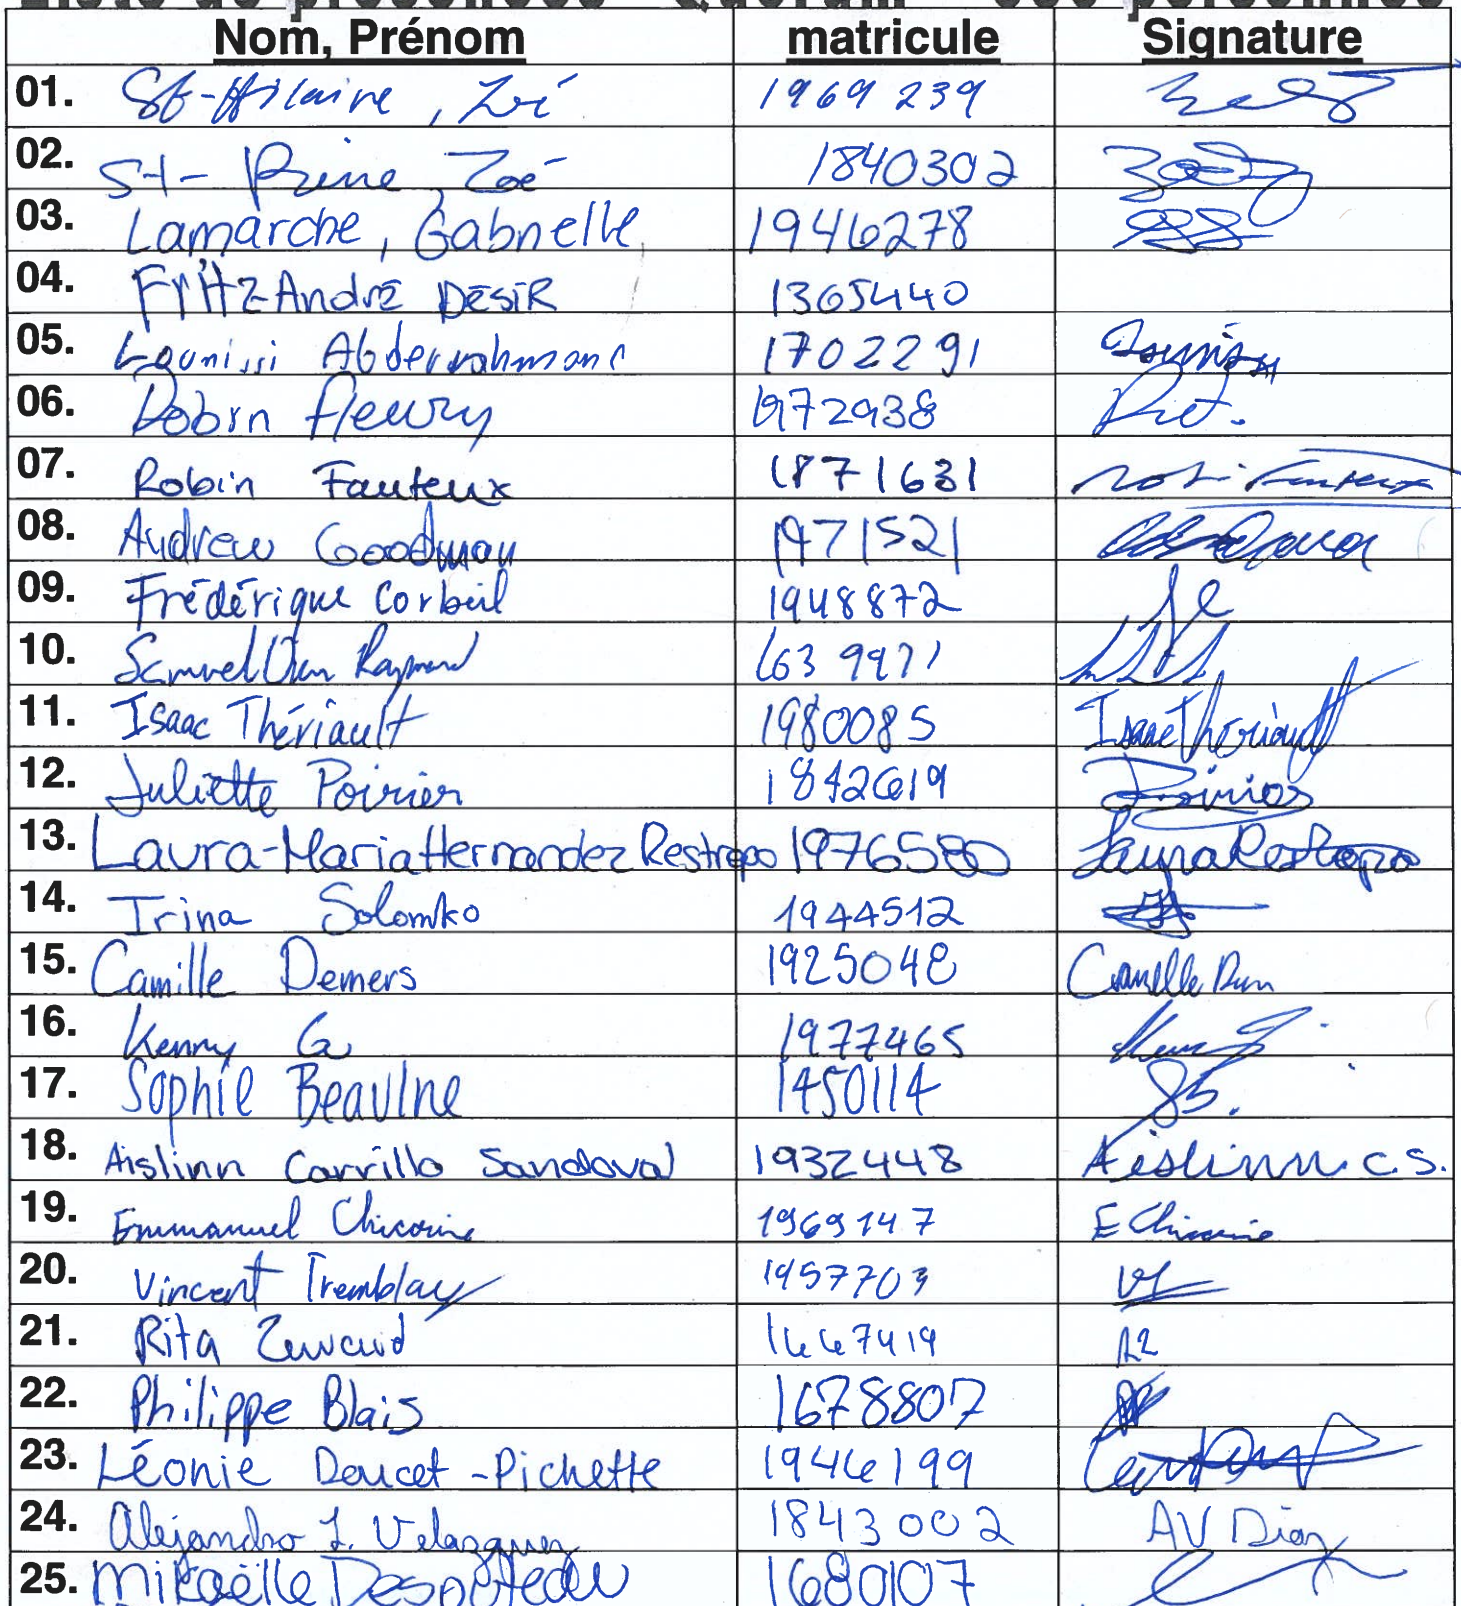 Nom, Prénom matricule Signature
01. St-Hilaire, Zoé 1969239
02. St-Pierre, Zoé 1840302
03. Lamarche, Gabrielle 1946278
04. Fritz-André DÉSIR 1365440
05. Lounissi Abderrahmane 1702291 Lounissi
06. Robin Fleury 1972938
07. Robin Fauteux 1871631 Robin Fauteux
08. Andrew Goodman 1971521
09. Frédérique Corbeil 1948872
10. Samuel Raymond 1639971
11. Isaac Thériault 1980085 Isaac Thériault
12. Juliette Poirier 1842619 Poirier
13. Laura-Maria Hernandez Restrepo 1976580 Laura Restrepo
14. Irina Solomko 1944512
15. Camille Demers 1925048 Camille Dem
16. Kenny G 1977465
17. Sophie Beaulne 1450114 SB.
18. Aislinn Carrillo Sandoval 1932448 Aislinn C.S.
19. Emmanuel Chicoine 1969147 E Chicoine
20. Vincent Tremblay 1957703
21. Rita 1667419 RZ
22. Philippe Blais 1678807
23. Léonie Doucet-Pichette 1946199
24. Alejandro J. Velazquez 1843002 AV Diaz
25. Mikaëlle Desnoteau 1680107